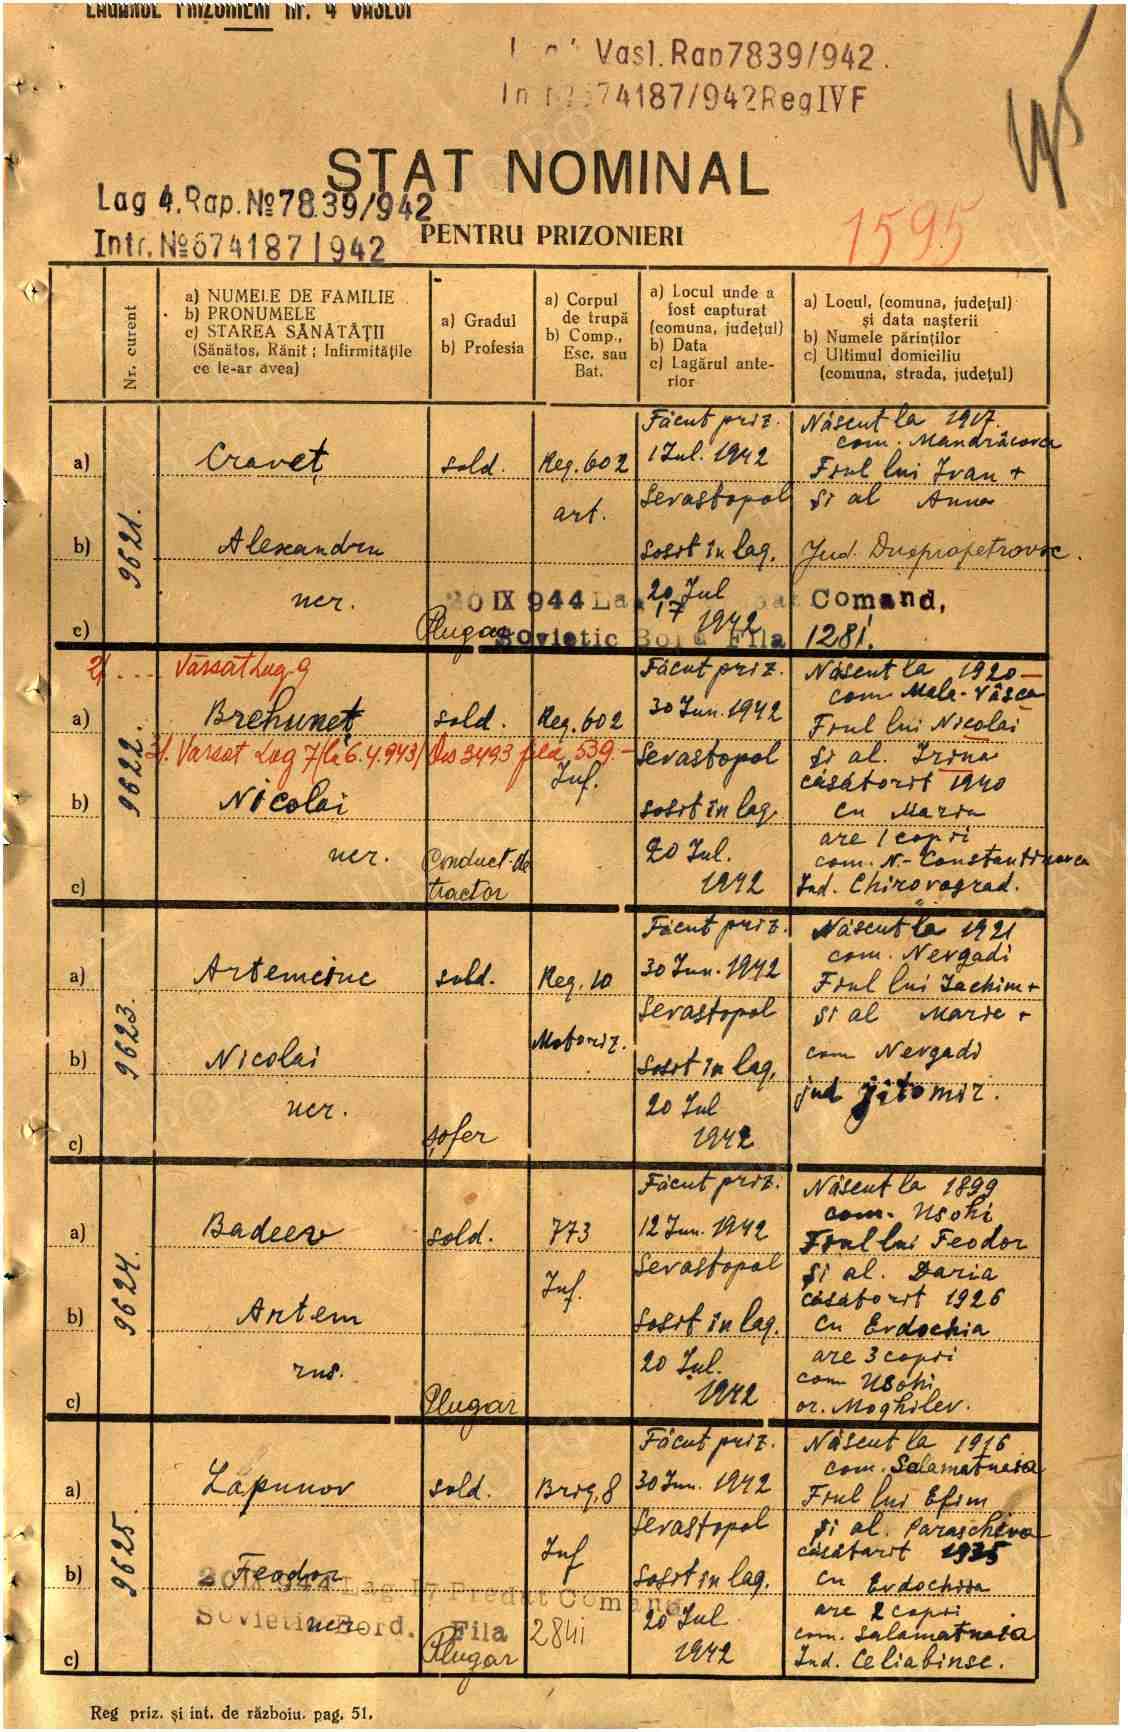 LAGĂRUL PRIZONIERI Nr. 4 VASLUI
Vasl. Rap 7839/942.
74187/942 Reg IV F
STAT NOMINAL
Lag 4. Rap. № 7839/942
PENTRU PRIZONIERI
Intr. № 674187/942
1595
Nr. curent
a) NUMELE DE FAMILIE
b) PRONUMELE
c) STAREA SĂNĂTĂȚII
(Sănătos, Rănit ; Infirmitățile
ce le-ar avea)
a) Gradul
b) Profesia
a) Corpul
de trupă
b) Comp.,
Esc. sau
Bat.
a) Locul unde a
fost capturat
(comuna, județul)
b) Data
c) Lagărul ante-
rior
a) Locul, (comuna, județul)
și data nașterii
b) Numele părinților
c) Ultimul domiciliu
(comuna, strada, județul)
9621.
a) Craveț
b) Alexandru
ucr.
c)
sold.
Plugar
Reg. 602
art.
Făcut priz.
1 Iul. 1942
Sevastopol
sosit în lag.
20 Iul
1942
Născut la 1917.
com. Mandrăcovca
Fiul lui Ivan +
și al Anna
Jud. Dnepropetrovsc.
20 IX 944 La 17 Comand,
Sovietic Bord Fila 1281.
9622.
2/. .... Vărsat Lag. 9
a) Brehuneț
3/. Vărsat Lag 7 (la 6.4.943) Dos 3493 fila 539.-
b) Nicolai
ucr.
c)
sold.
Conduct. de
tractor
Reg. 602
Inf.
Făcut priz.
30 Iun. 1942
Sevastopol
sosit în lag.
20 Iul.
1942
Născut la 1920-
com. Mala-Vâsca
Fiul lui Nicolai
și al. Irina
căsătorit 1940
cu Maria
are 1 copii
com. N.-Constantinovca
Jud. Chirovograd.
9623.
a) Artemciuc
b) Nicolai
ucr.
c)
sold.
șofer
Reg. 10
Motoriz.
Făcut priz.
30 Iun. 1942
Sevastopol
Sosit în lag.
20 Iul
1942
Născut la 1921
com. Nevgadi
Fiul lui Iachim +
și al Marie +
com Nevgadi
jud jitomir.
9624.
a) Badeev
b) Artem
rus.
c)
sold.
Plugar
773
Inf.
Făcut priz.
12 Iun. 1942
Sevastopol
Sosit în lag.
20 Iul.
1942
Născut la 1899
com. Usohi
Fiul lui Feodor
și al. Daria
căsătorit 1926
cu Evdochia
are 3 copii
com Usohi
or. Moghilev.
9625.
a) Lapunov
b) Feodor
ucr.
c)
sold.
Plugar
Brig. 8
Inf
Făcut priz.
30 Iun. 1942
Sevastopol
Sosit în lag.
20 Iul
1942
Născut la 1916
com. Salamatnaia
Fiul lui Efim
și al. Paraschiva
căsătorit 1935
cu Evdochia
are 2 copii
com. Salamatnaia
Jud. Celiabinsc.
20 IX 944 Lag 17 Predat Comand
Sovietic Bord. Fila 2841
Reg priz. și int. de războiu. pag. 51.